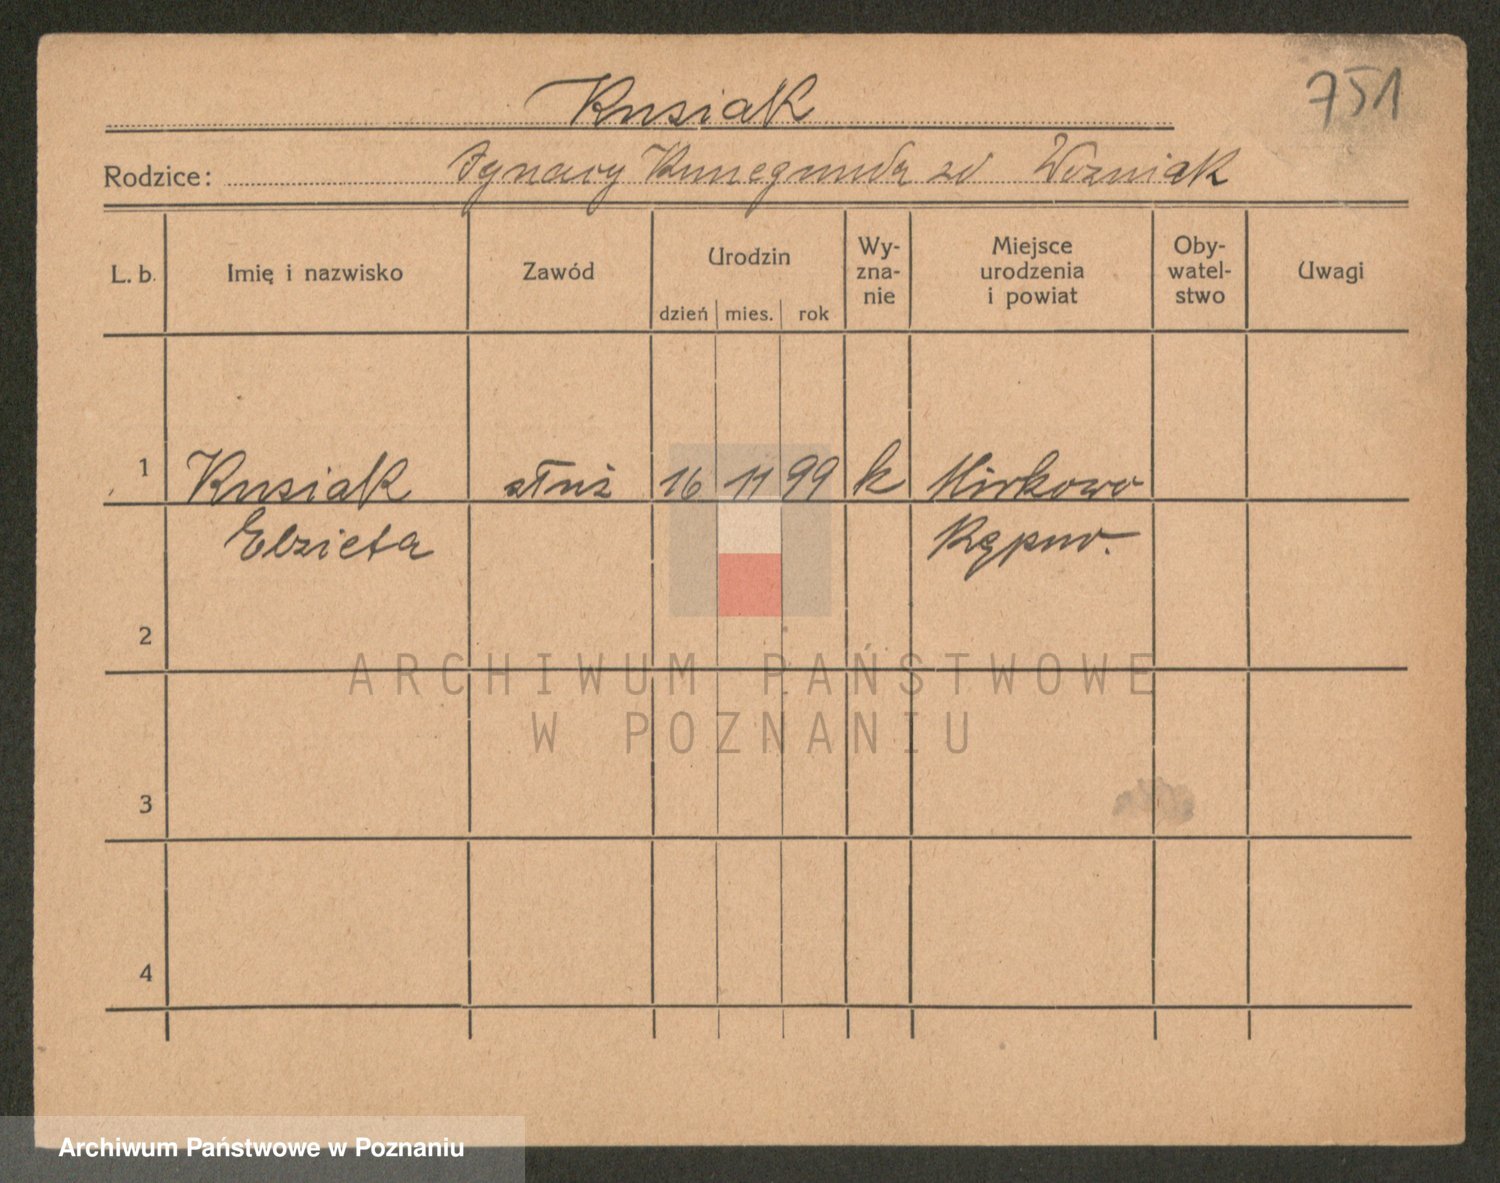 Kusiak
751
Rodzice: Ignacy Kunegunda zd Wozniak
L. b. Imię i nazwisko Zawód Urodzin dzień mies. rok Wy-zna-nie Miejsce urodzenia i powiat Oby-watel-stwo Uwagi
1 Kusiak służ 16 11 99 k Mirkowo
Elzieta
2
3
4
ARCHIWUM PAŃSTWOWE
W POZNANIU
Archiwum Państwowe w Poznaniu